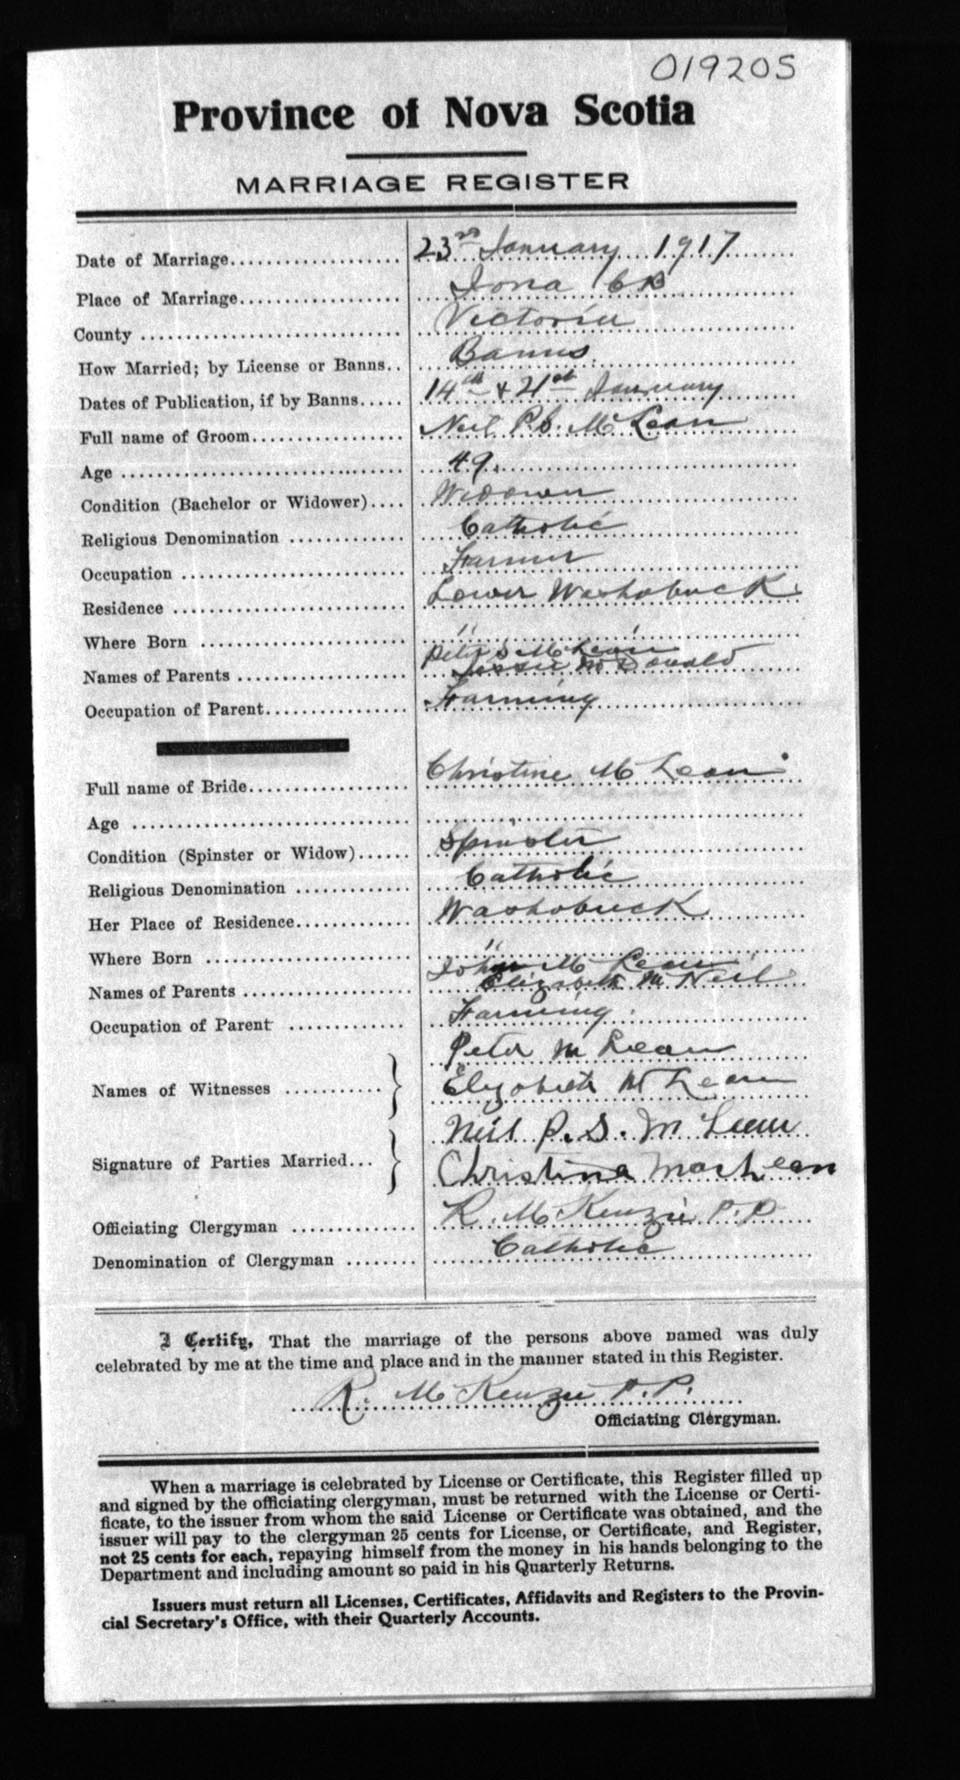 019205
Province of Nova Scotia
MARRIAGE REGISTER
Date of Marriage 23rd January 1917
Place of Marriage Iona CB
County Victoria
How Married; by License or Banns Banns
Dates of Publication, if by Banns 14th & 21st January
Full name of Groom Neil P.S. McLean
Age 49
Condition (Bachelor or Widower) Widower
Religious Denomination Catholic
Occupation Farmer
Residence Lower Washabuck
Where Born "
Names of Parents Peter S McLean
Jessie McDonald
Occupation of Parent Farming
Full name of Bride Christine McLean
Age
Condition (Spinster or Widow) Spinster
Religious Denomination Catholic
Her Place of Residence Washabuck
Where Born "
Names of Parents John McLean
Elizabeth McNeil
Occupation of Parent Farming
Peter McLean
Names of Witnesses Elyzabeth McLean
Neil P. S. McLean
Signature of Parties Married Christina MacLean
Officiating Clergyman R. McKenzie P.P
Denomination of Clergyman Catholic
I Certify, That the marriage of the persons above named was duly
celebrated by me at the time and place and in the manner stated in this Register.
R. McKenzie P.P.
Officiating Clergyman.
When a marriage is celebrated by License or Certificate, this Register filled up
and signed by the officiating clergyman, must be returned with the License or Certi-
ficate, to the issuer from whom the said License or Certificate was obtained, and the
issuer will pay to the clergyman 25 cents for License, or Certificate, and Register,
not 25 cents for each, repaying himself from the money in his hands belonging to the
Department and including amount so paid in his Quarterly Returns.
Issuers must return all Licenses, Certificates, Affidavits and Registers to the Provin-
cial Secretary's Office, with their Quarterly Accounts.